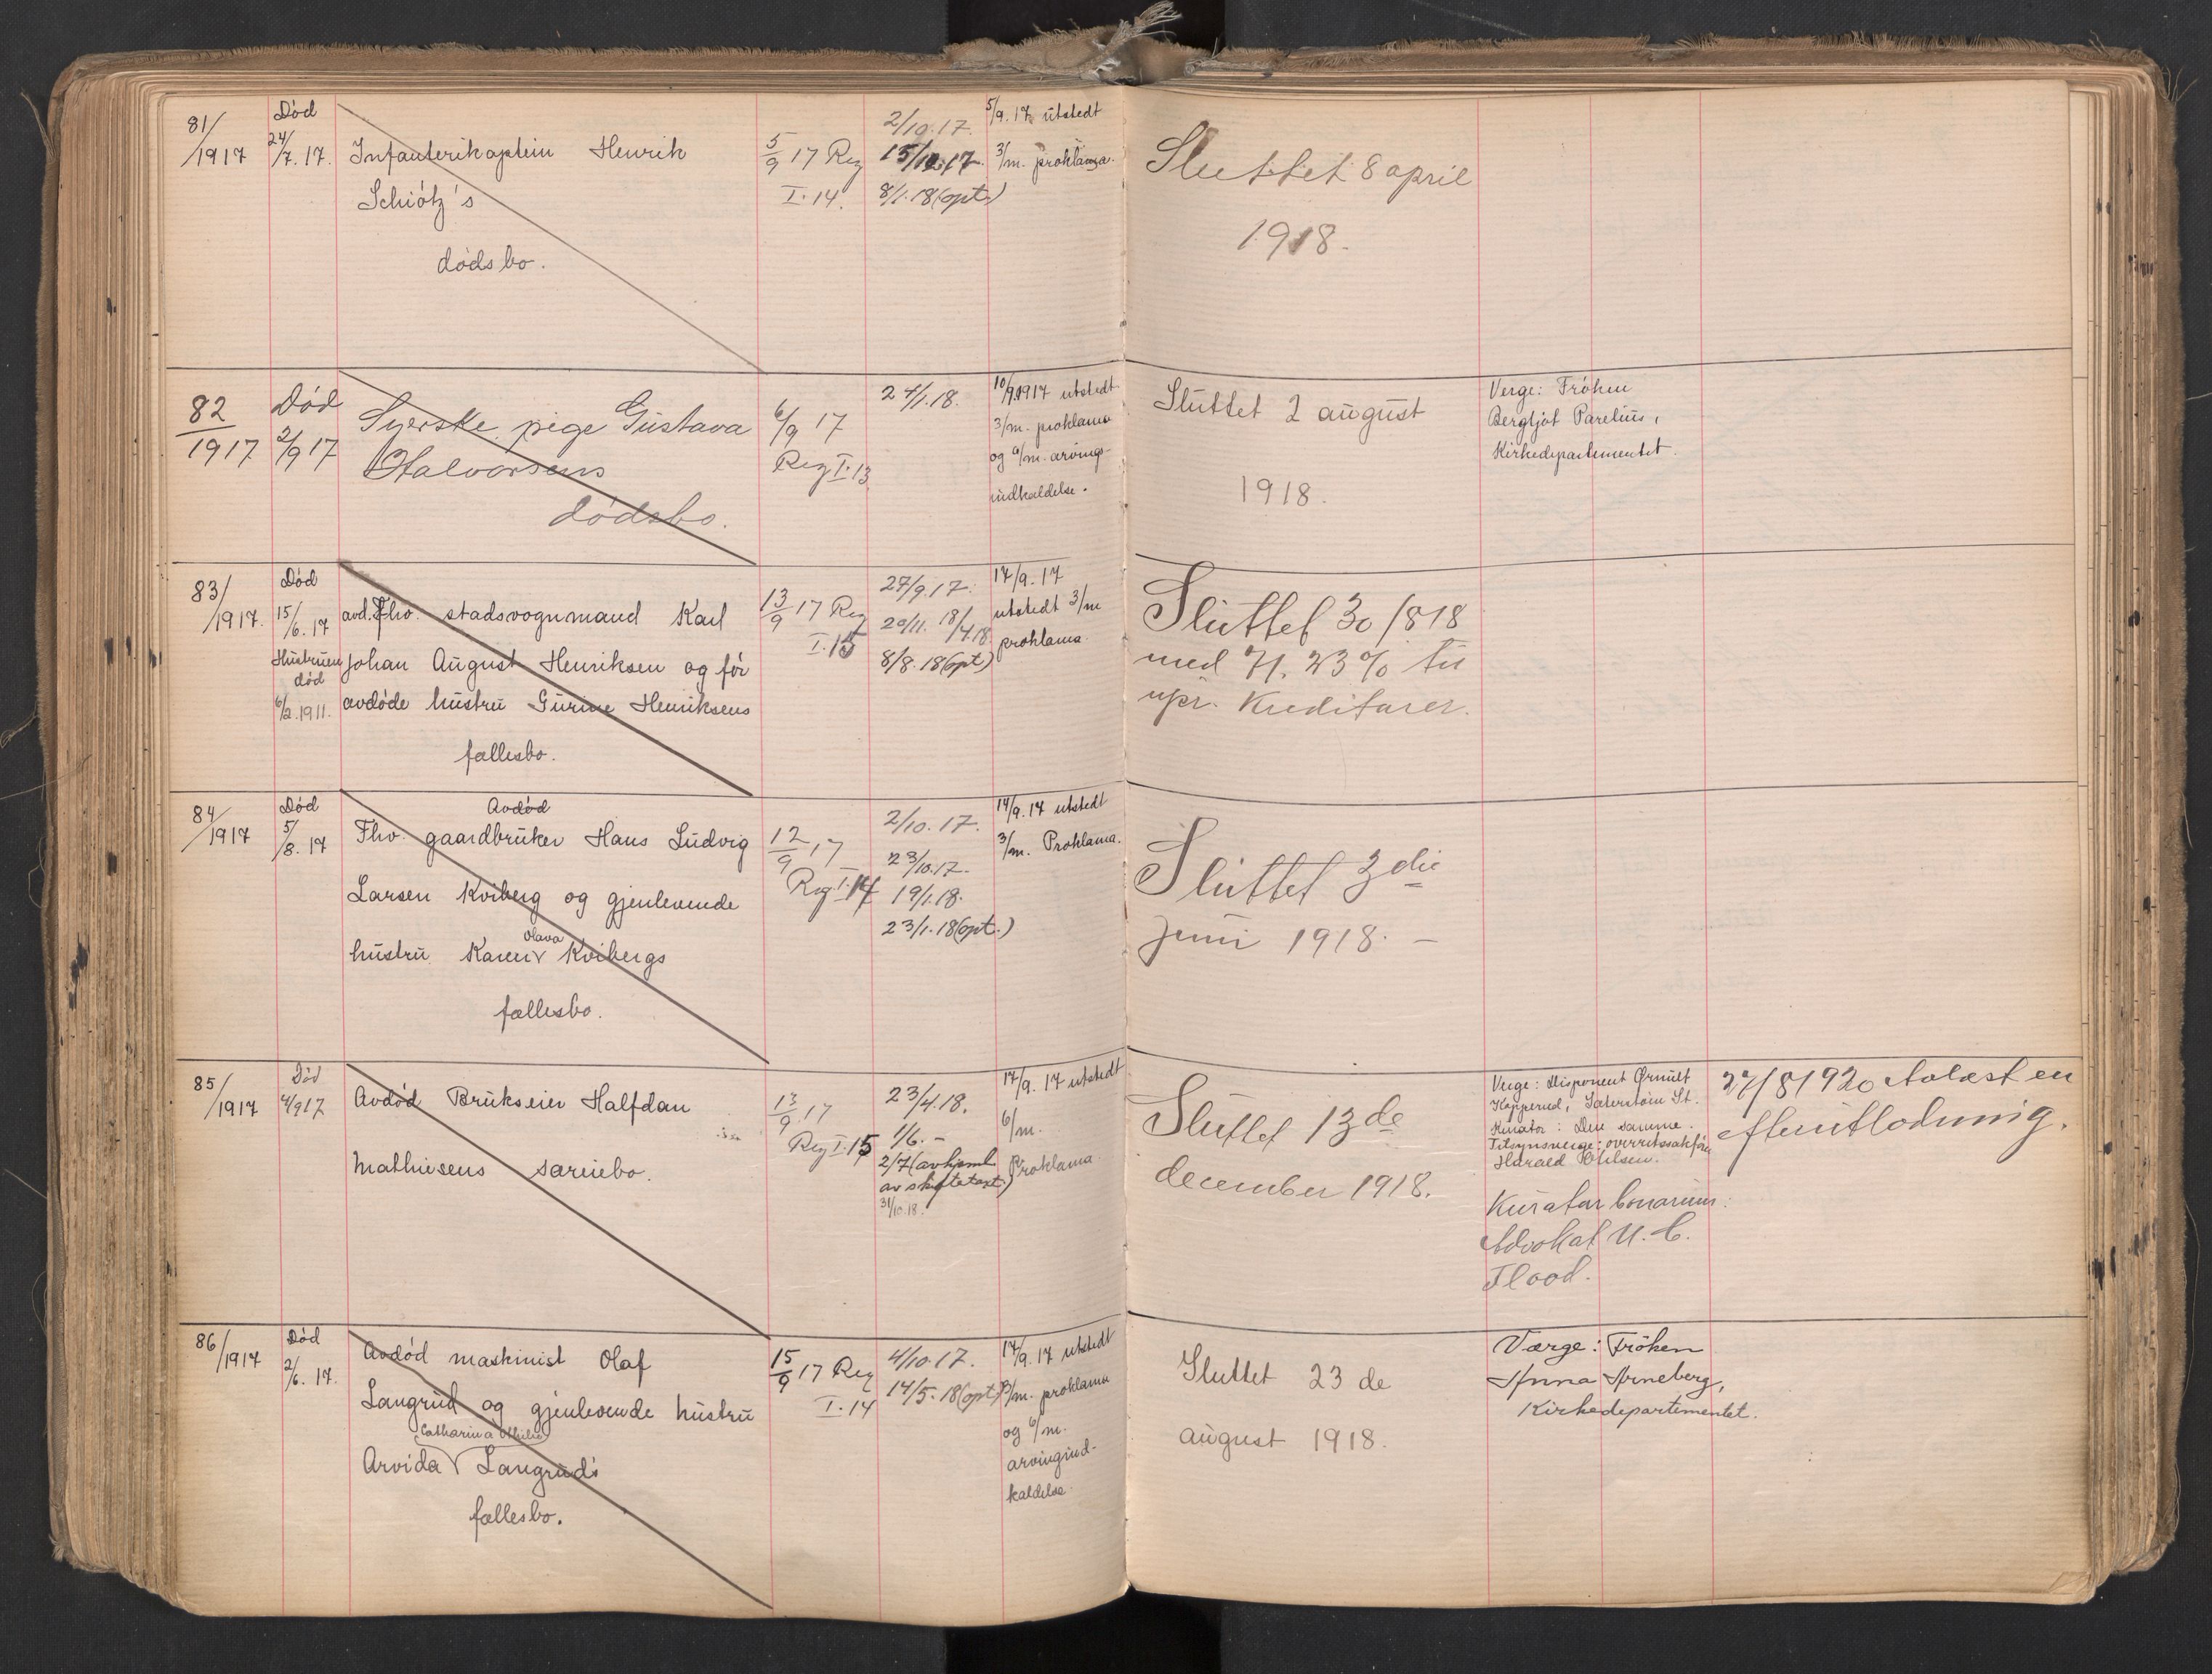 81/1917
Død
24/7. 17.
Infanterikaptein Henrik
Schiötz's
dødsbo.
5/9 17 Reg
I. 14.
2/10. 17.
15/12. 17.
8/1. 18 (opt.)
5/9. 17 utstedt
3/m. proklama.
Sluttet 8 april
1918.
82/1917
Død
2/9 17
Syerske, pige Gustava
Halvorsens
dødsbo.
6/9 17
Reg I. 13
24/1. 18.
10/9. 1917 utstedt
3/m. proklama
og 6/m. arvings-
indkaldelse.
Sluttet 2 august
1918.
Verge: Frøken
Bergljot Parelius,
Kirkedepartementet.
83/1917.
Død
15/6. 17
Hustruen
død
6/2. 1911.
avd. Fhv. stadsvognmand Karl
Johan August Henriksen og før
avdøde hustru Gurine Henriksens
fællesbo.
13/9 17 Reg
I. 15
27/9. 17.
20/11. 18/4. 18.
8/8. 18 (opt)
17/9. 17
utstedt 3/m
proklama.
Sluttet 30/8 18
med 71. 23 % til
upr. Kreditorer.
84/1917
Død
5/8. 17
Avdød
Fhv. gaardbruker Hans Ludvig
Larsen Kviberg og gjenlevende
Olava
hustru Karen Kvibergs
fællesbo.
12/9 17
Reg I. 14
2/10. 17.
23/10. 17.
19/1. 18.
23/1. 18 (opt.)
14/9. 17 utstedt
3/m. Proklama.
Sluttet 3die
juni 1918. –
85/1917
Død
4/9 17
Avdød Brukseier Halfdan
Mathiesens særeiebo.
13/9 17
Reg I. 15
23/4. 18.
1/6. –
2/7 (avhjeml.
av skiftetaxt)
31/10. 18.
17/9. 17 utstedt
6/m.
Proklama
Sluttet 13de
december 1918.
Verge: Disponent Ørnulf
Kopperud, Sæterstøen St.
Kurator: Den samme.
Tilsynsverge: overretssakfører
Harald
Kurator bonorum:
Advokat U. C.
Flood.
27/8 1920 Avlæst en
efterutlodning.
86/1917
Død
2/6. 17.
Avdød maskinist Olaf
Langrud og gjenlevende hustru
Catharina Othilie
Arvida Langruds
fællesbo.
15/9 17 Reg
I. 14
4/10. 17.
14/5. 18 (opt)
17/9. 17 utstedt
3/m. proklama
og 6/m.
arvingind-
kaldelse.
Sluttet 23 de
august 1918.
Værge: Frøken
Anna Arneberg,
Kirkedepartementet.